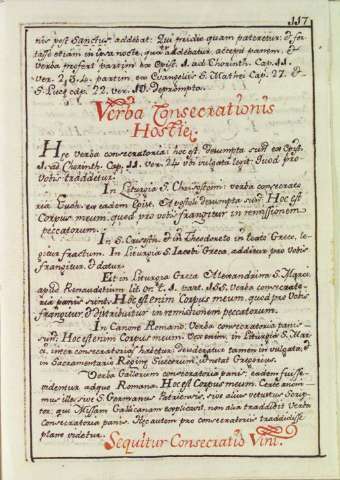 117
nis vest Sanctus addebat: Qui pridie quam pateretur: et for
tasse etiam in ipsa nocte, qua addebatur, accepit panem, et
verba profert partim ex Epist. I. ad Chorinth. Cap. 11.
ver. 2, 3, 4. partim ex Evangeliis S. Mathei Cap. 27. et
S. Lucę cap. 22. ver. 10. deprompta.
Verba Consecrationis
Hostię.
Hęc verba consecratoria: hoc est, deumpta sunt ex Epist.
I. ad Chorinth. Cap. 11. ver. 24. ubi vulgata legit: Quod pro
vobis traddetur.
In Liturgia S. Chrisostomi: verba consecrato
ria Euch. ex eadem Epist. et deumpta sunt: Hoc est
Corpus meum, quod pro vobis frangitur in remissionem
peccatorum.
In S. et in Theodoreto in locis Gręco, le-
gitur fractum. In Liturgia S. Iacobi Gręca, additur pro vobis
frangitur, et datur.
Et in Liturgia Gręca Alexandrina S. Marci,
apud Renaudotium lit. or. t. 1. part. 156. Verba consecrato-
ria panis sunt: Hoc est enim Corpus meum, quod pro Vobis
frangitur, et distribuitur in remissionem peccatorum.
In Canone Romano: Verba consecratoria panis
sunt: Hoc est enim Corpus meum. Vox enim, in Liturgia S. Mar-
ci, inter consecratorias habetur; tamen in vulgata, et
in Sacramentario Reginę Suecorum, omitat Gregorius.
Verba Gallorum consecratoria panis: eadem fuisse
ostendentur adque Romana. Hoc est Corpus meum. Certe anoni-
mus ille sive S. Germanus Parisiensis, sive alius vetustus Scrip-
tor, qui Missam Gallicanam explicavit, non alia traddidit verba
consecratoria panis. Hęc autem pro consecratoriis traddidisse
plane videtur.
Sequitur Consecratio Vini.